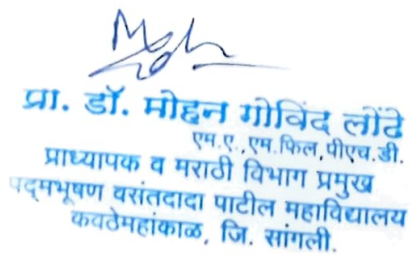 प्रा. डॉ. मोहन गोविंद लोंढे
एम.ए., एम.फिल, पीएच.डी.
प्राध्यापक व मराठी विभाग प्रमुख
पद्मभूषण वसंतदादा पाटील महाविद्यालय
कवठेमहांकाळ, जि. सांगली.